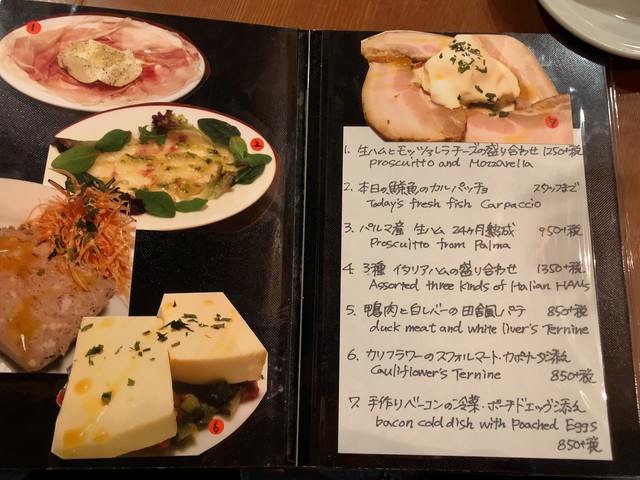 1
2
6
7
1. 生ハムとモッツァレラチーズの盛り合わせ 1250+税
proscuitto and Mozzarella
2. 本日の鮮魚のカルパッチョ スタッフまで
Today's fresh fish Carpaccio
3. パルマ産 生ハム 24ヶ月熟成 950+税
Proscuitto from Palma
4. 3種 イタリアハムの盛り合わせ 1350+税
Assorted three kinds of Italian HAMs
5. 鴨肉と白レバーの田舎風パテ 850+税
duck meat and white liver's Ternine
6. カリフラワーのスフォルマート・カポナータ添え
Cauliflower's Ternine 850+税
7. 手作りベーコンの冷菜・ポーチドエッグ添え
bacon cold dish with Poached Eggs
850+税